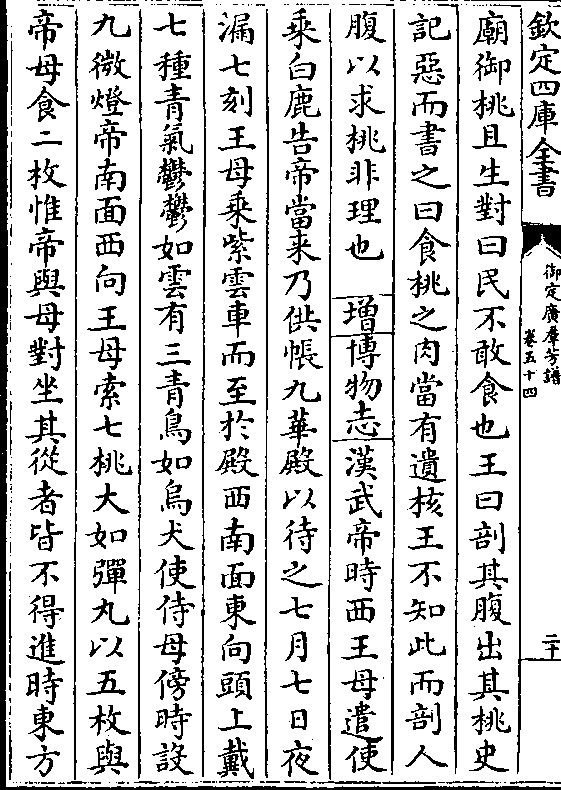 欽定四庫全書
御定廣羣芳譜
卷五十四
二十
廟御桃且生對曰民不敢食也王曰剖其腹出其桃史
記惡而書之曰食桃之肉當有遺核王不知此而剖人
腹以求桃非理也 增博物志漢武帝時西王母遣使
乘白鹿告帝當来乃供帳九華殿以待之七月七日夜
漏七刻王母乘紫雲車而至於殿西南面東向頭上戴
七種青氣鬱鬱如雲有三青鳥如烏大使侍母傍時設
九微燈帝南面西向王母索七桃大如彈丸以五枚與
帝母食二枚惟帝與母對坐其從者皆不得進時東方